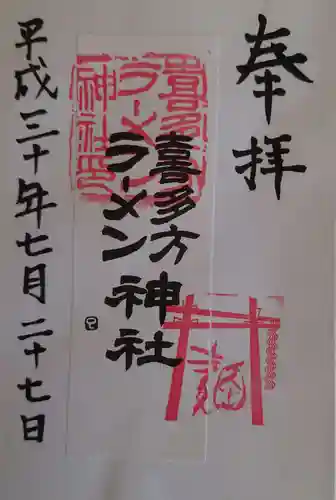 奉拝
喜多方
ラーメン神社
喜多方
ラーメン
神社印
平成三十年七月二十七日